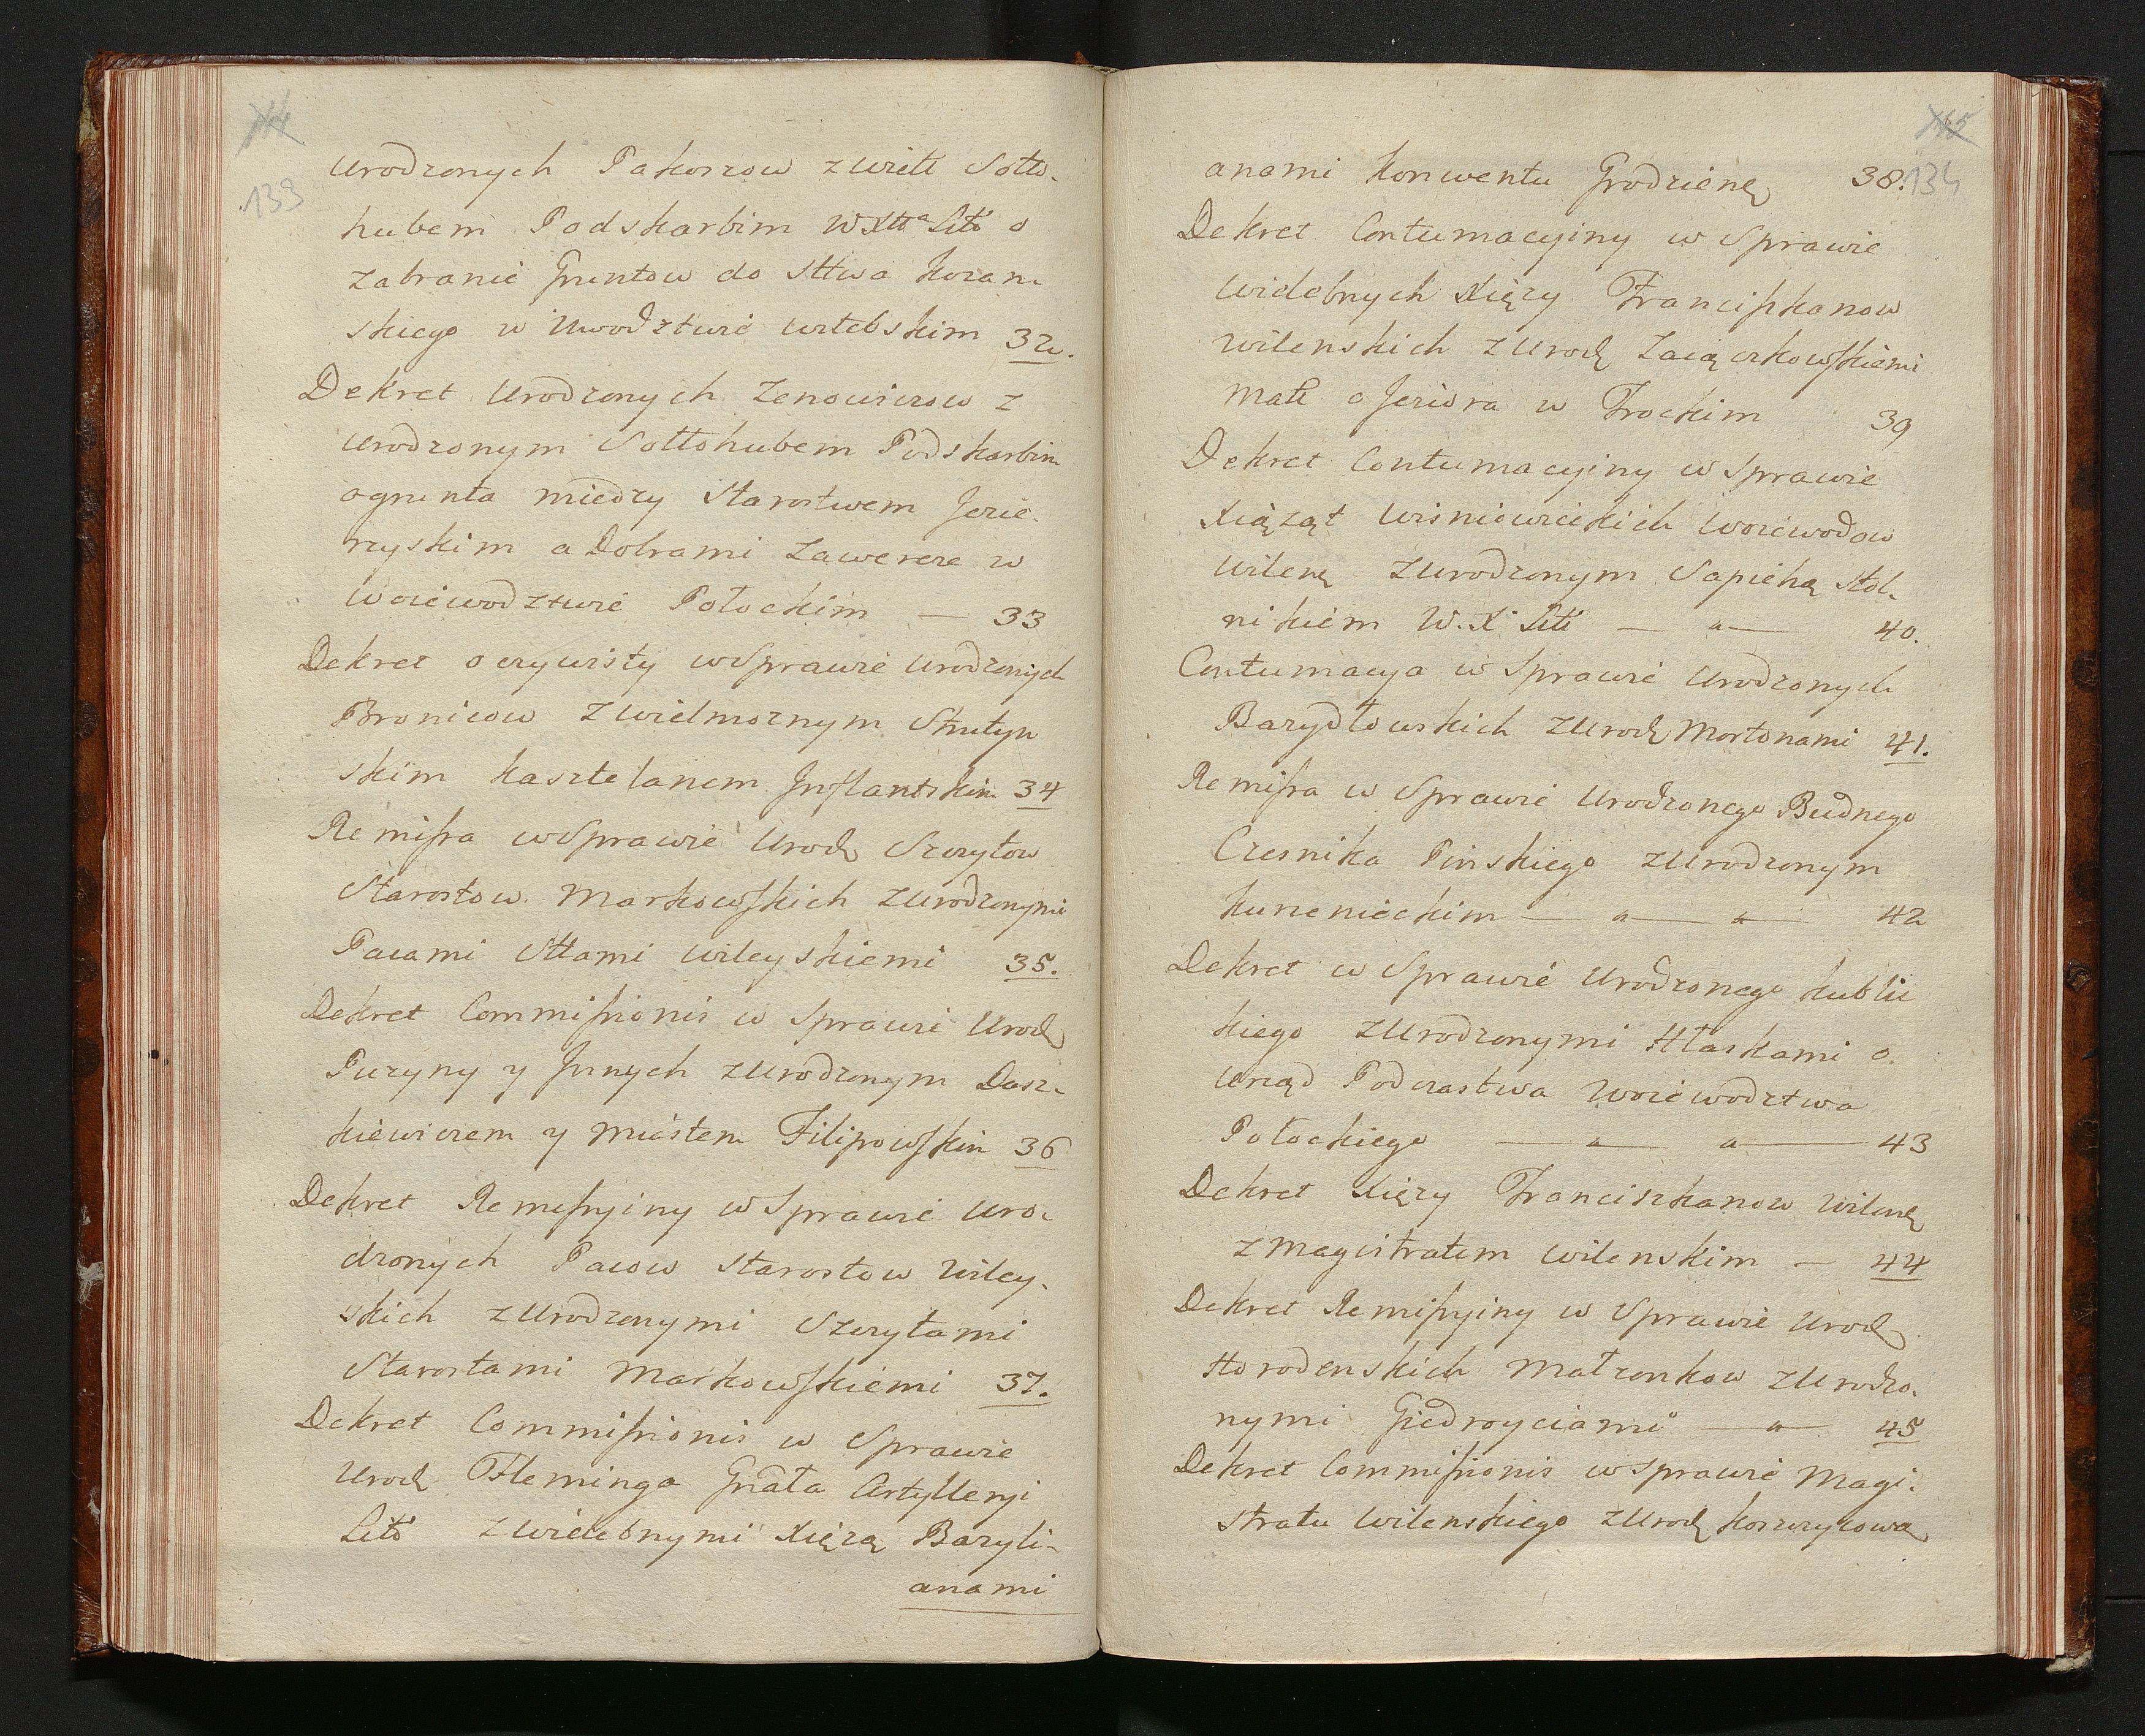 133
Urodzonych Pakoszow z Wielt Sołło-
hubem Podskarbim W Xtt Litt o
zabranie Gruntow do Sttwa Kozan-
skiego w Uwodztwie witebskim 32.
Dekret Urodzonych Zenowiczow z
Urodzonym Sołłohubem Podskarbim
o grunta miedzy Starostwem Jezie-
ryskim a Dobrami Zawerez w
Woiewodztwie Połockim — 33
Dekret oczywisty w Sprawie Urodzonych
Bronicow z Wielmoznym Strutyn
skim Kasztelanem Inflantskim 34
Remissa w Sprawie Urod Szczytow
Starostow Markowskich z Urodzonymi
Pacami Sttami Wileyskiemi 35.
Dekret Commissionis w Sprawie Urod
Puzyny y Innych z Urodzonym Dasz-
kiewiczem y Miastem Filipowskim 36
Dekret Remissyiny w Sprawie Uro-
dzonych Pacow Starostow Wiley-
skich z Urodzonymi Szczytami
Starostami Markowskiemi 37.
Dekret Commissionis w Sprawie
Urod Fleminga Grała Artylleryi
Litt z Wielebnymi Xięzą Bazyli-
anami
134
anami Konwentu Grodzienę 38.
Dekret Contumacyiny w Sprawie
Wielebnych Xięzy Franciszkanow
Wilenskich z Urod Zaiączkowskiemi
Małt o Jeziora w Trockim 39
Dekret Contumacyiny w Sprawie
Xiąząt Wisniowieckich Woiewodow
Wilenę z Urodzonym Sapiehą Stol-
nikiem W. X Litt — " — 40.
Contumacya w Sprawie Urodzonych
Bazydłowskich z Urod Mortonami 41.
Remissa w Sprawie Urodzonego Budnego
Czesnika Pinskiego z Urodzonym
Kuncnieckim — " — " — 42
Dekret w Sprawie Urodzonego Kublic
kiego z Urodzonymi Hłaskami o
Urząd Podczastwa Woiewodztwa
Połockiego — " — " — 43
Dekret Xięzy Franciszkanow Wilenę
z Magistratem Wilenskim — 44
Dekret Remissyiny w Sprawie Urod
Horodenskich Małzonkow z Urodzo-
nymi Giedroyciami — " — 45
Dekret Commissionis w Sprawie Magi-
stratu Wilenskiego z Urod